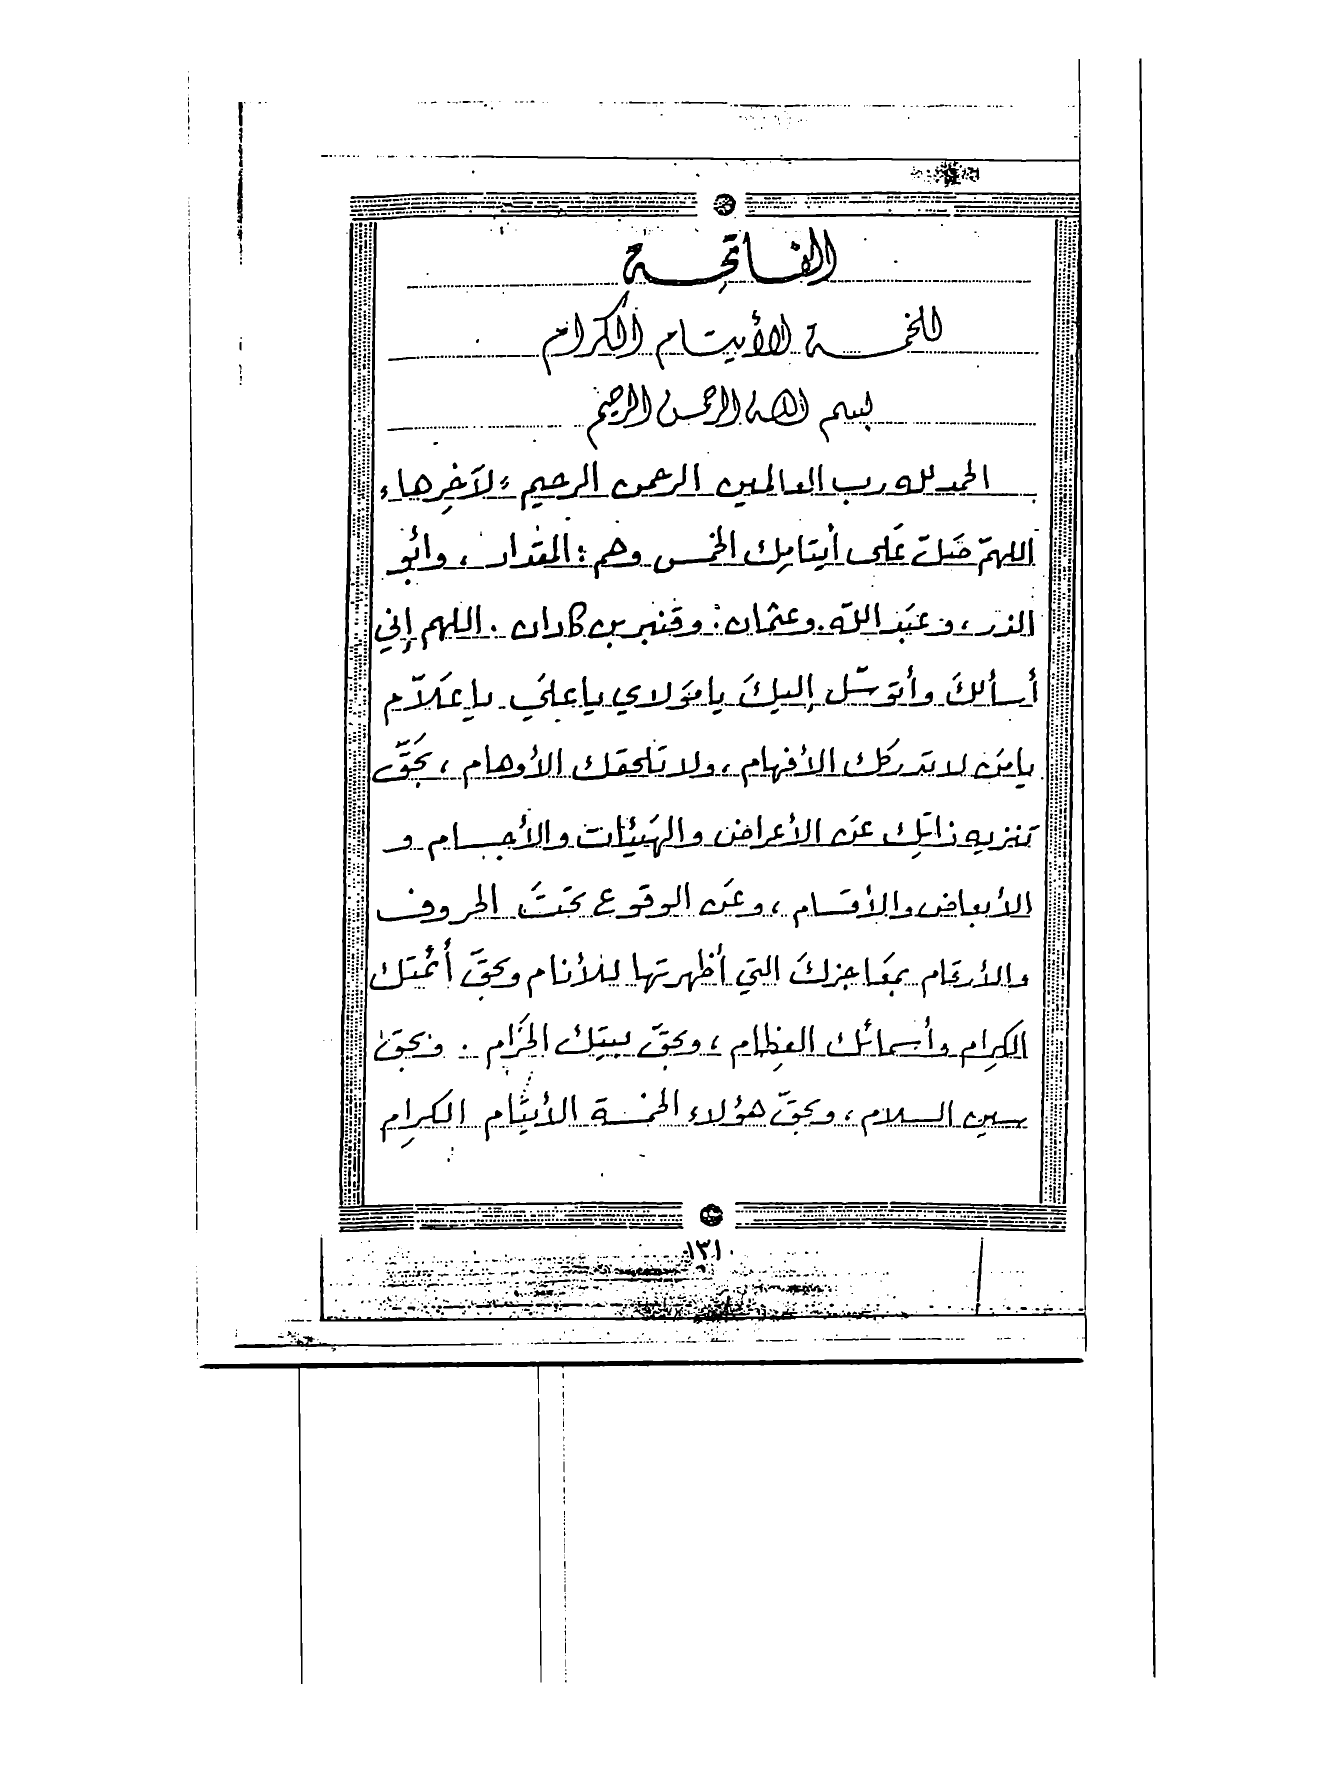 الفاتحة
للخمسة الأيتام الكرام
بسم الله الرحمن الرحيم
الحمد لله رب العالمين الرحمن الرحيم "لآخِرها"
اللهمّ صَلّ عَلى أيتامِك الخمس وهم: المقداد، وأبُو
الذر، وعبَد اللّه. وعثمان: وقنبر بن كادان. اللهم إني
أسألكَ وأتوسّل إليكَ يا مَولاي يا علي يا عَلاّم
يا مَن لا تدركك الأفهام، ولا تلحقك الأوهام، بحَقّ
تنزيه ذاتِك عَن الأعراض والهَيئات والأجسام و
الأبعاض والأقسام، وعَن الوقوع تحتَ الحروف
والأرقام بمعَاجزكَ التي أظهرتها للأنام وبحقّ أئمتك
الكرِام وأسمائك العظِام، وبحقّ بيتِك الحَرَام. وبحق
سين السلام، وبحقّ هؤلاء الخمسة الأيتَام الكرِام
١٣١